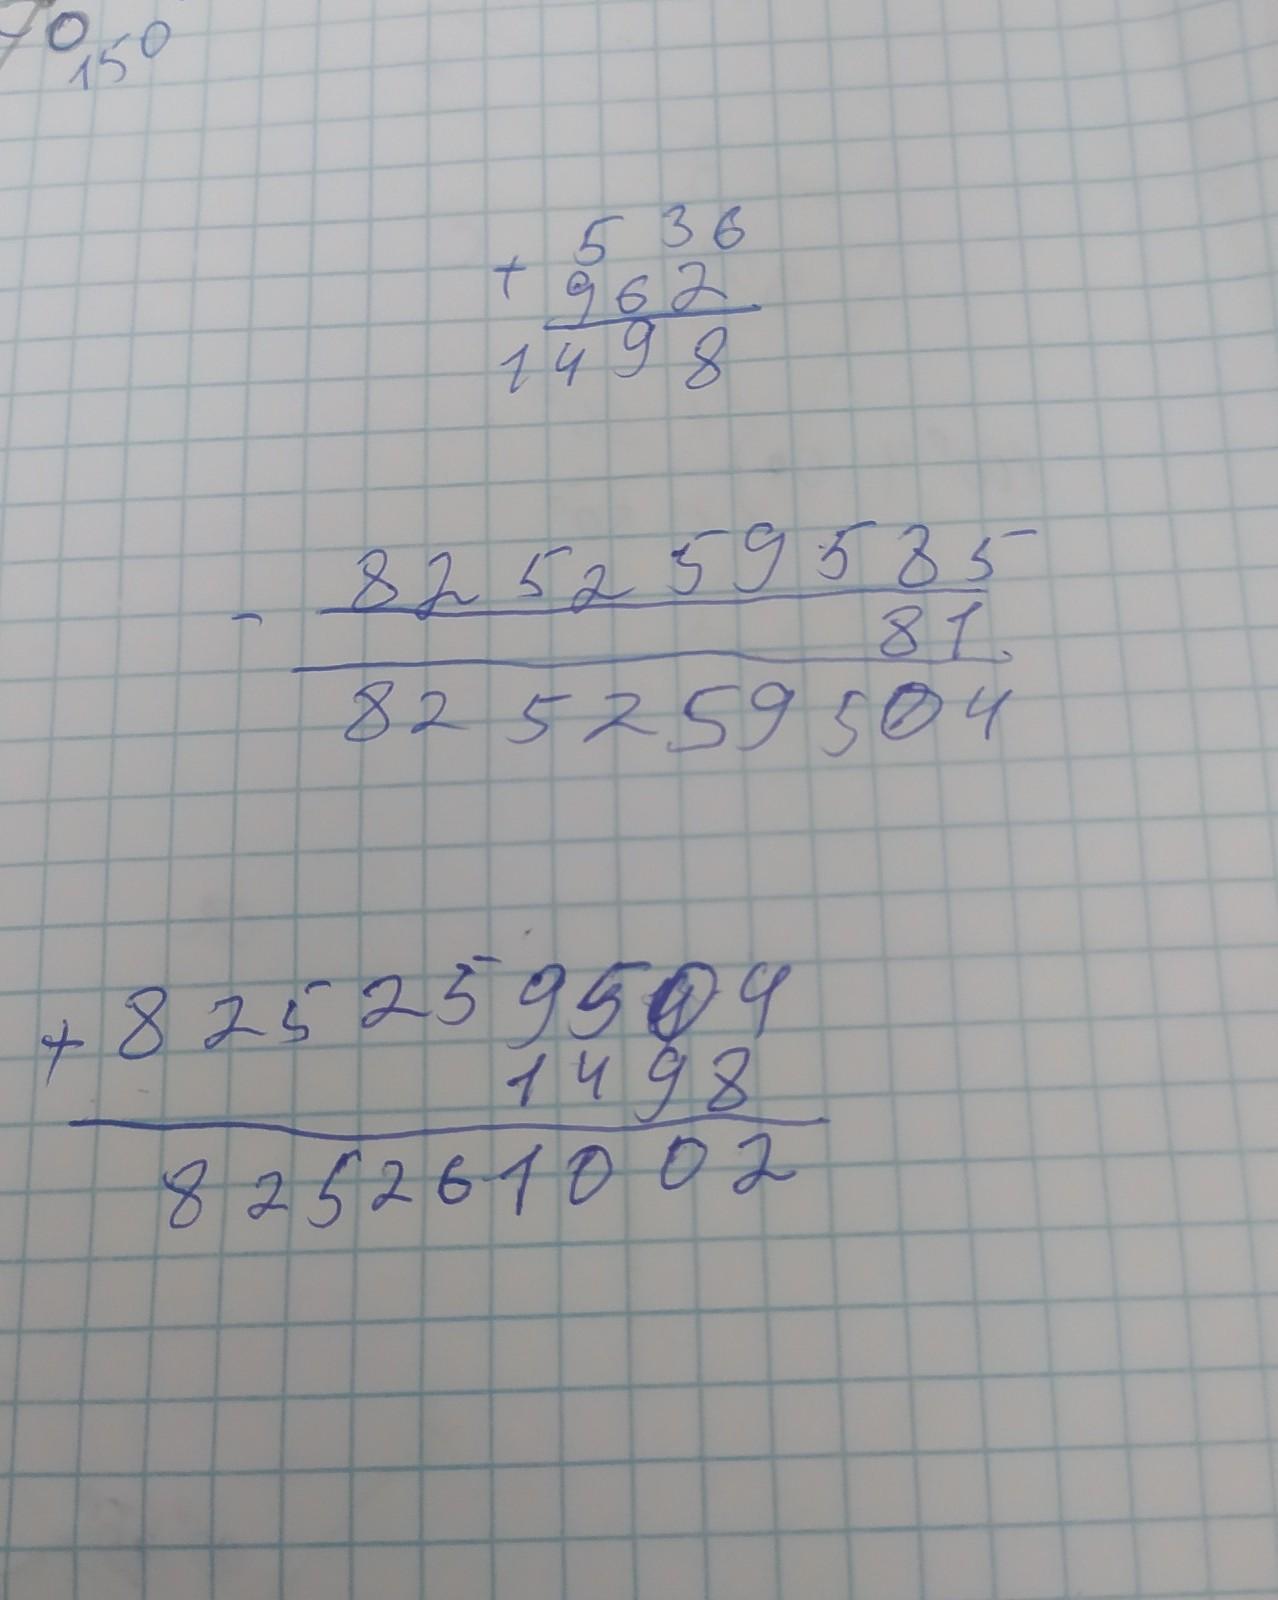 70
150
536
+ 962
1498
825259585
- 81
825259504
+ 825259504
1498
825261002